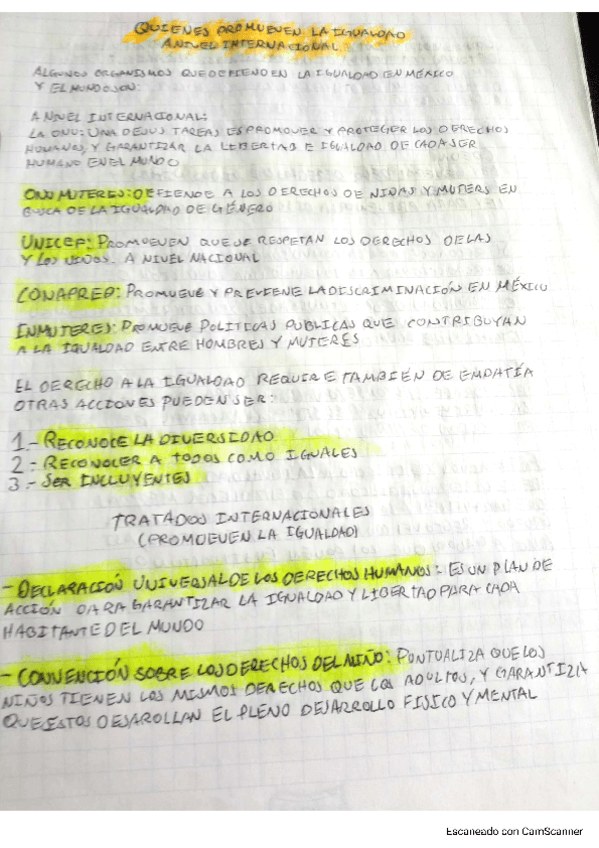 QUIENES PROMUEVEN LA IGUALDAD
A NIVEL INTERNACIONAL.
ALGUNOS ORGANISMOS QUE DEFIENDEN LA IGUALDAD EN MÉXICO
Y EL MUNDO SON:
A NIVEL INTERNACIONAL:
LA ONU: UNA DE SUS TAREAS ES PROMOVER Y PROTEGER LOS DERECHOS
HUMANOS, Y GARANTIZAR LA LIBERTAD E IGUALDAD DE CADA SER
HUMANO EN EL MUNDO
ONU MUJERES: DEFIENDE A LOS DERECHOS DE NIÑAS Y MUJERS EN
BUSCA DE LA IGUALDAD DE GÉNERO
UNICEF: PROMUEVEN QUE SE RESPETAN LOS DERECHOS DE LAS
Y LOS NIÑOS. A NIVEL NACIONAL
CONAPRED: PROMUEVE Y PREVIENE LA DISCRIMINACIÓN EN MÉXICO
INMUJERES: PROMUEVE POLITICAS PUBLICAS QUE CONTRIBUYAN
A LA IGUALDAD ENTRE HOMBRES Y MUJERES
EL DERECHO A LA IGUALDAD REQUIRE TAMBIÉN DE EMPATÍA
OTRAS ACCIONES PUEDEN SER:
1.- RECONOCE LA DIVERSIDAD
2.- RECONOCER A TODOS COMO IGUALES
3.- SER INCLUYENTES
TRATADOS INTERNACIONALES
(PROMUEVEN LA IGUALDAD)
- DECLARACIÓN UNIVERSAL DE LOS DERECHOS HUMANOS: ES UN PLAN DE
ACCIÓN PARA GARANTIZAR LA IGUALDAD Y LIBERTAD PARA CADA
HABITANTE DEL MUNDO
- CONVENCIÓN SOBRE LOS DERECHOS DEL NIÑO: PUNTUALIZA QUE LOS
NIÑOS TIENEN LOS MISMOS DERECHOS QUE LOS ADULTOS, Y GARANTIZA
QUE ESTOS DESAROLLAN EL PLENO DESARROLLO FISICO Y MENTAL
Escaneado con CamScanner